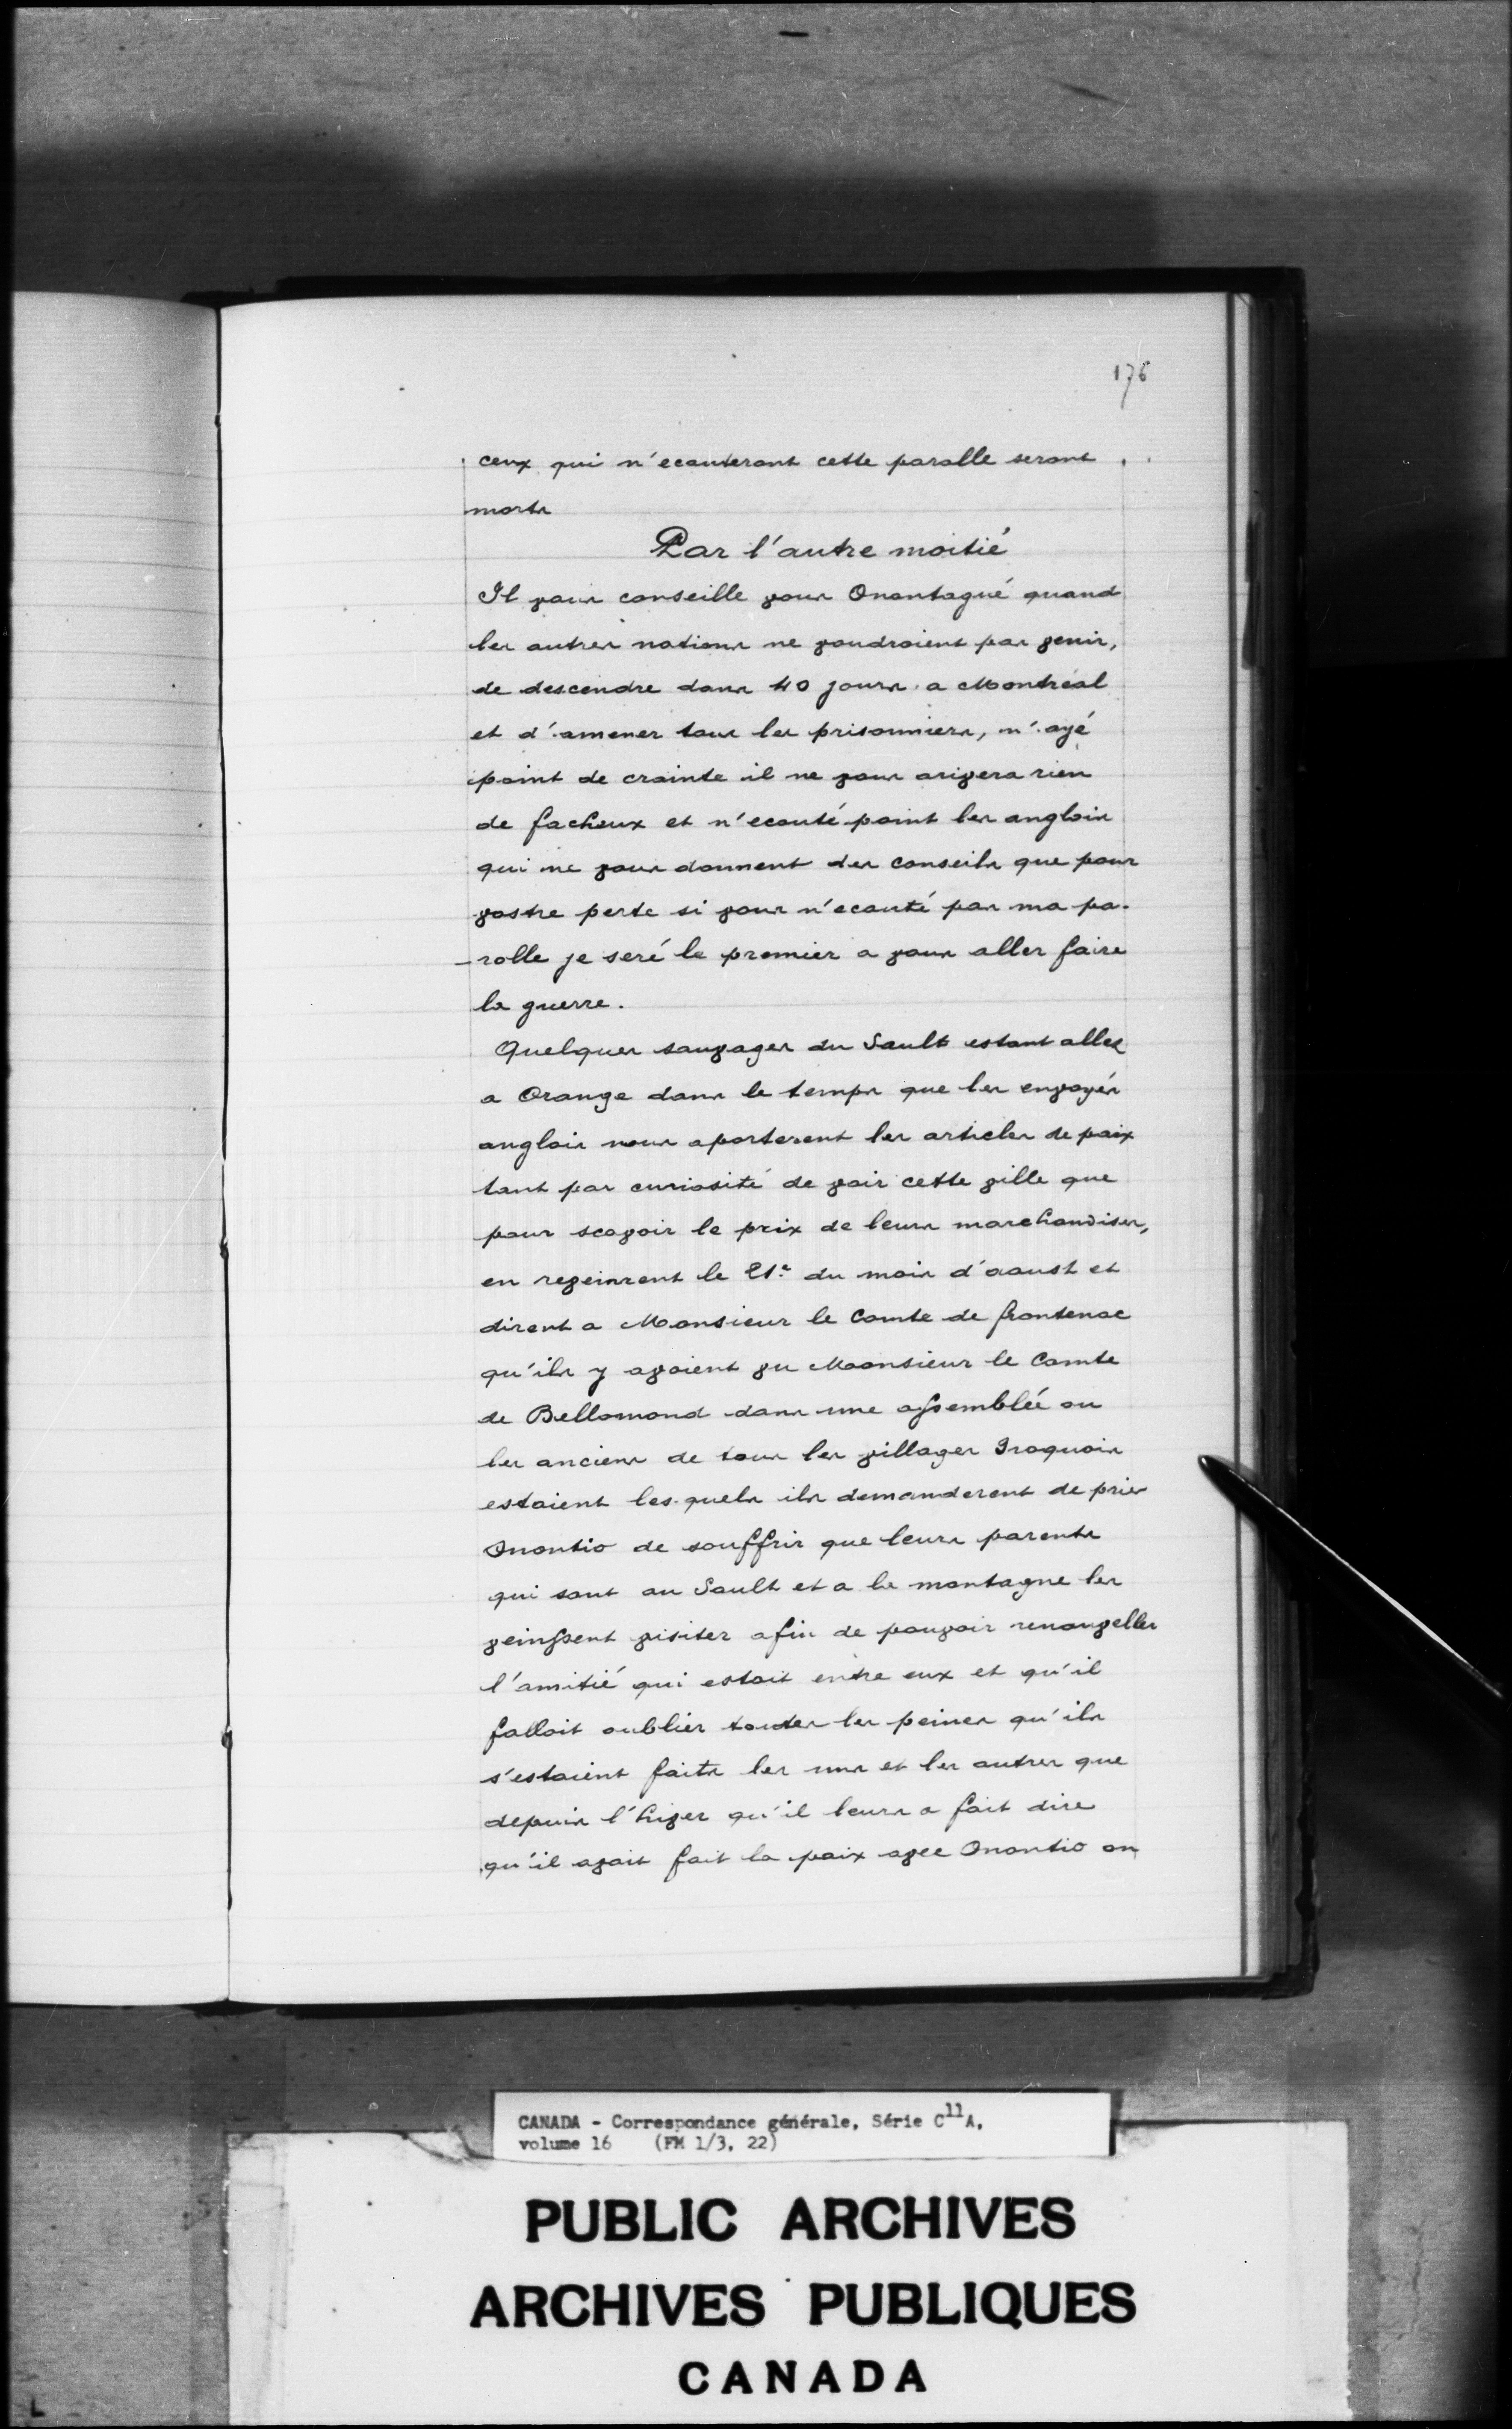 176
ceux qui n'ecouteront cette parolle seront
morts
Par l'autre moitié
Il vous conseille vous Onontagué quand
les autres nations ne voudroient pas venir,
de descendre dans 40 jours a Montréal
et d'amener tous les prisonniers, n'ayé
point de crainte il ne vous arivera rien
de facheux et n'ecouté point les anglois
qui ne vous donnent des conseils que pour
vostre perte si vous n'ecouté pas ma pa-
-rolle je seré le premier a vous aller faire
la guerre.
Quelques sauvages du Sault estant allez
a Orange dans le temps que les envoyés
anglois nous aporterent les articles de paix
tant par curiosité de voir cette ville que
pour scavoir le prix de leurs marchandises,
en reveinrent le 21e du mois d'aoust et
dirent a Monsieur le Comte de frontenac
qu'ils y avoient vu Moonsieur le Comte
de Bellomond dans une assemblée ou
les anciens de tous les villages Iroquois
estoient les quels ils demanderent de prier
Onontio de souffrir que leurs parents
qui sont au Sault et a la montagne les
veinssent visiter afin de pouvoir renouveller
l'amitié qui estoit entre eux et qu'il
falloit oublier toutes les peines qu'ils
s'estoient faits les uns et les autres que
depuis l'hiver qu'il leurs a fait dire
qu'il avait fait la paix avec Onontio on
CANADA - Correspondance générale, Série C11A,
volume 16 (FM 1/3, 22)
PUBLIC ARCHIVES
ARCHIVES PUBLIQUES
CANADA
L